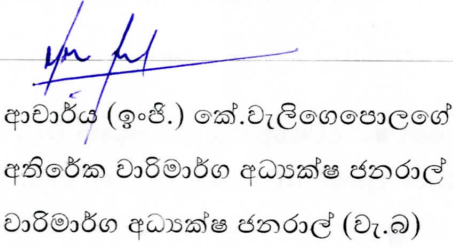 ආචාර්ය (ඉංජි.) කේ.වැලිගෙපොලගේ
අතිරේක වාරිමාර්ග අධ්‍යක්ෂ ජනරාල්
වාරිමාර්ග අධ්‍යක්ෂ ජනරාල් (වැ.බ)